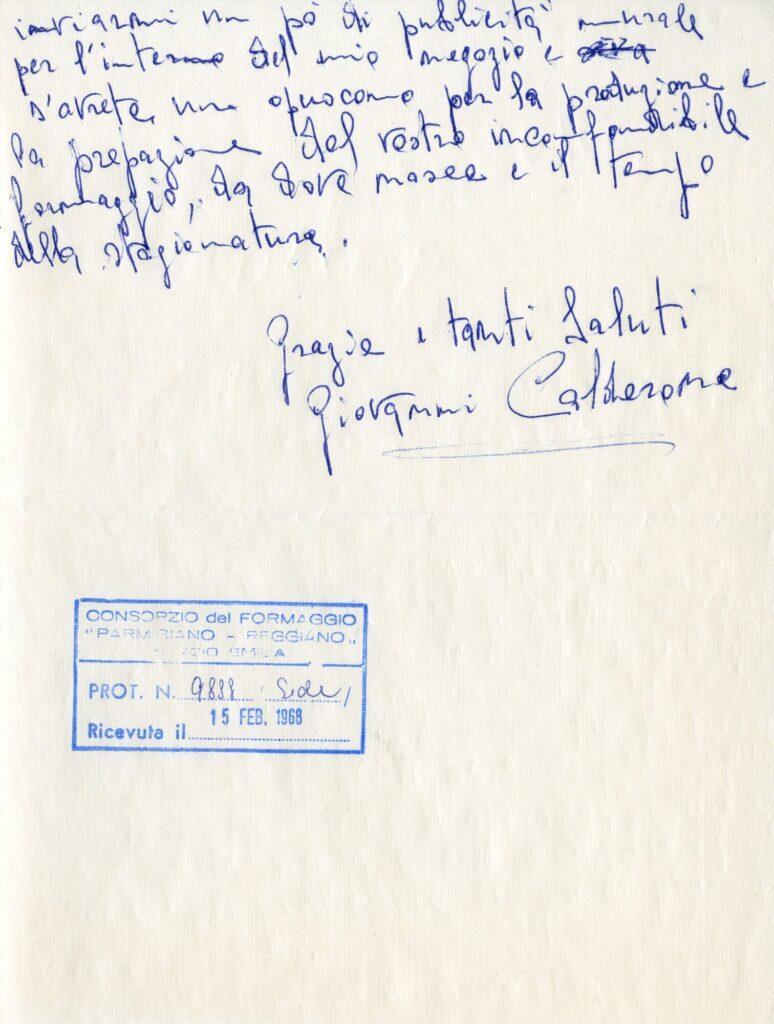 inviarmi un pò di publicità murale
per l'interno del mio negozio e
s'avrete un opuocomo per la produzione e
la prepazione del vostro inconfondibile
formaggio, da dove nasce e il tempo
della stagionatura.
Grazie e tanti saluti
Giovanni Calderone
CONSORZIO del FORMAGGIO
"PARMIGIANO - REGGIANO"
REGGIO EMILIA
PROT. N. 9888 Sede/
15 FEB. 1968
Ricevuta il